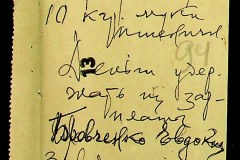 10 кг. муки
пшеничн.
94
13
Деньги удер-
жать из зар-
платы
Бровченко Евдокии